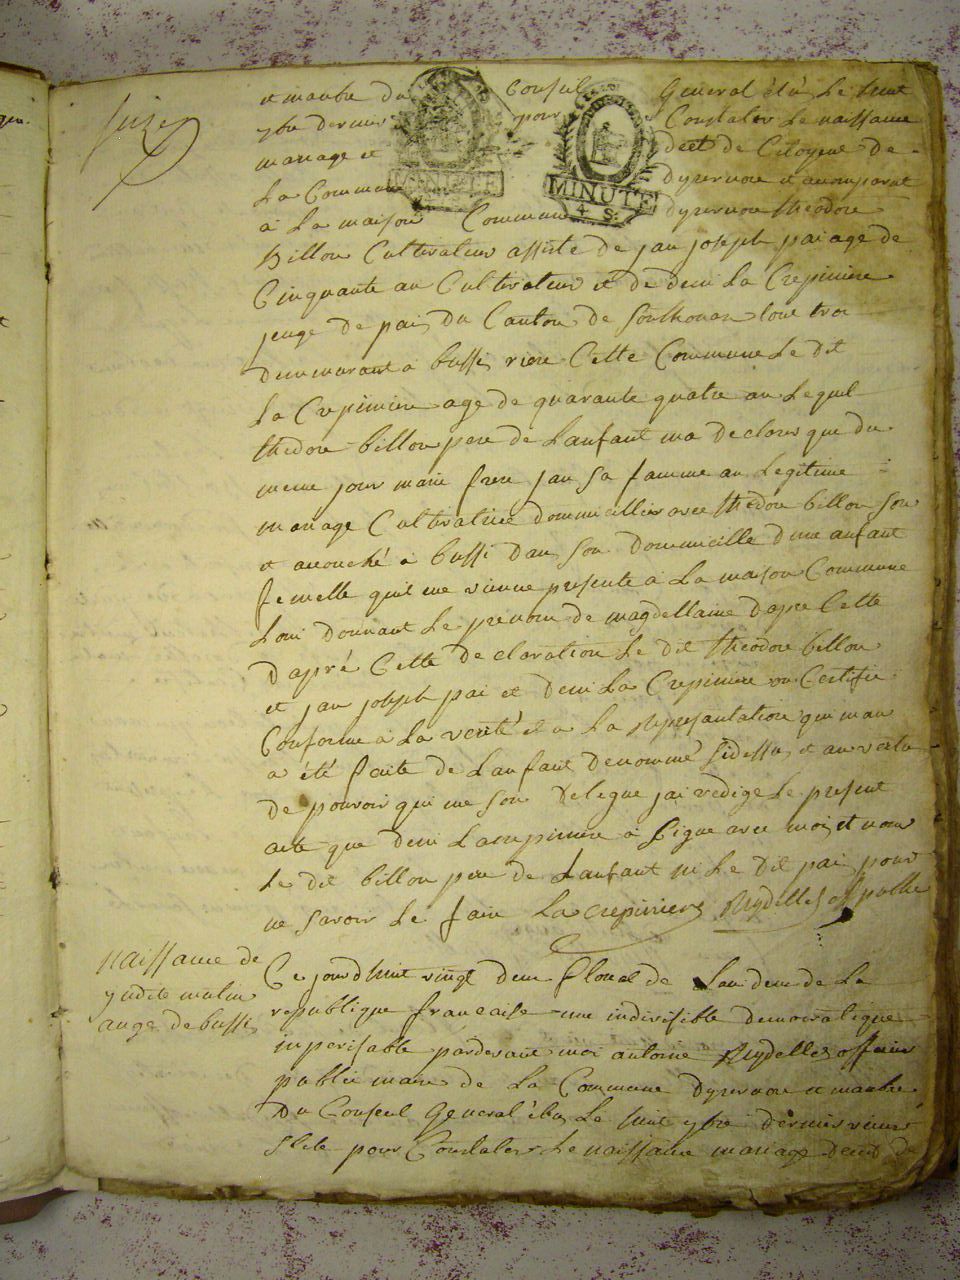 suzen
et manbre du Conseil General élu Le huit
ybre dernier pour Constater Le naissance
mariage et deét de Citoyens de
La Commune dyzernore et a comparut
à La maison Commune dyzernore theodore
billon Cultivateur assisté de jan joseph pai age de
Cinquante an Cultivateur et de deni La Crepiniere
jeuge de pai du Canton de
demeurant a bussi riere Cette Commune Le dit
La Crepiniere age de quarante quatre an Lequel
theodore billon pere de Lanfant ma declares que du
meme jour marie frere jan sa famme an Legitime
mariage Cultivatrice dommicilliés avec theodore billon son
et acouché a bussi dan son dommicille dune anfant
femelle quil me vienne presente à La maison Commune
Loui donnant Le prenom de magdellaine dapre Cette
dapré Cette declaration Le dit theodore billon
et jan joseph pai et deni La Crepiniere on Certifie
Conforme à La verité et a La represantation qui man
a été faite de Lanfant denommé sidessu et an vertu
de pouvoir qui me son delegue jai redige Le present
acte que deni Lacrepiniere a signe avec moi et non
Le dit billon pere de Lanfant ni Le dit pai pour
ne savoir Le faire La crepiniere Reydellet off publie
naissance de
ange de bussi
Ce jourdhuit vingt deux floreal de Lan deux de La
republique francaise une indivisible democratique
inperisable pardevant moi antoine Reydellet officier
public maire de La Commune dyzernore et manbre
du Conseil General élu Le huit ybre dernier
pour Constater Le naissance mariage deét de
MINUTE
MINUTE
4 S.